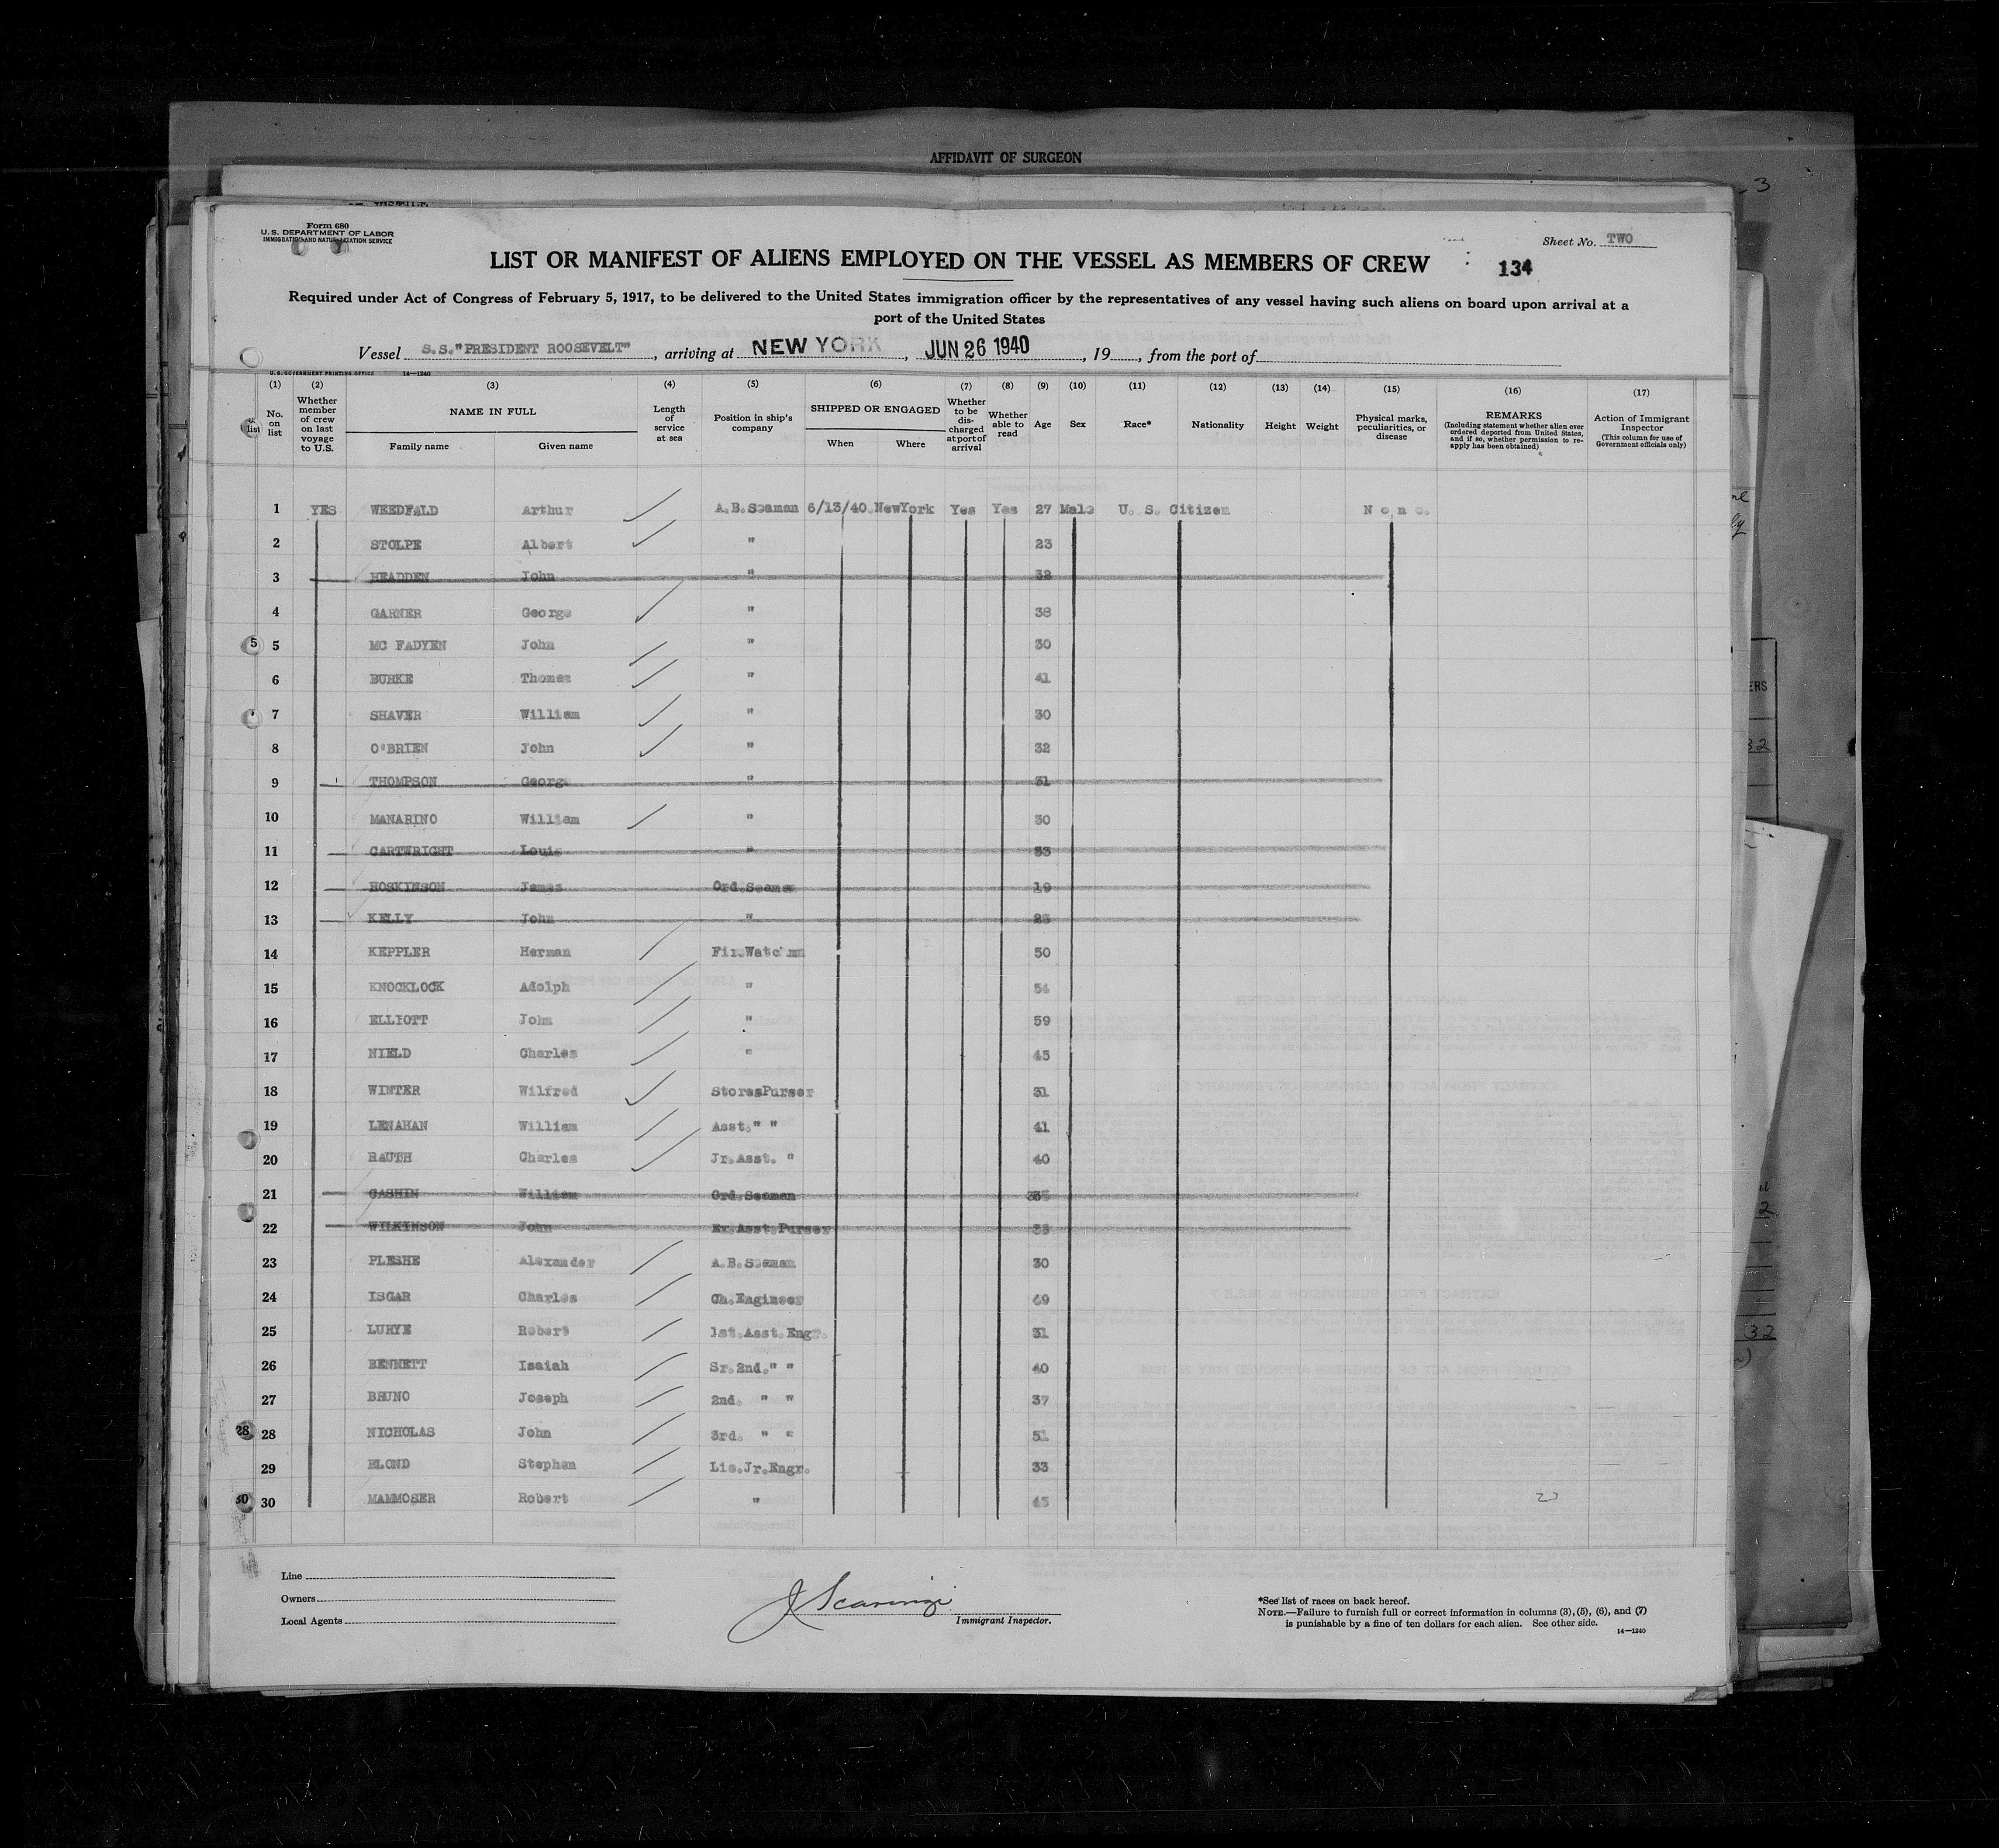 AFFIDAVIT OF SURGEON
3
Form 680
U. S. DEPARTMENT OF LABOR
IMMIGRATION AND NATURALIZATION SERVICE
Sheet No. TWO
LIST OR MANIFEST OF ALIENS EMPLOYED ON THE VESSEL AS MEMBERS OF CREW
134
Required under Act of Congress of February 5, 1917, to be delivered to the United States immigration officer by the representatives of any vessel having such aliens on board upon arrival at a
port of the United States
Vessel S.S."PRESIDENT ROOSEVELT", arriving at NEW YORK, JUN 26 1940, 19, from the port of
U. S. GOVERNMENT PRINTING OFFICE 14—1240
(1) (2) (3) (4) (5) (6) (7) (8) (9) (10) (11) (12) (13) (14) (15) (16) (17)
No. on list
Whether member of crew on last voyage to U.S.
NAME IN FULL
Family name Given name
Length of service at sea
Position in ship's company
SHIPPED OR ENGAGED
When Where
Whether to be discharged at port of arrival
Whether able to read
Age
Sex
Race*
Nationality
Height
Weight
Physical marks, peculiarities, or disease
REMARKS
(Including statement whether alien ever ordered deported from United States, and if so, whether permission to re-apply has been obtained)
Action of Immigrant Inspector
(This column for use of Government officials only)
1 YES WEEDFALD Arthur A.B.Seaman 6/13/40.NewYork Yes Yes 27 Male U. S. Citizen None.
2 STOLPE Albert " 23
3 HEADDEN John " 32
4 GARNER George " 38
5 5 MC FADYEN John " 30
6 BURKE Thomas " 41
7 SHAVER William " 30
8 O'BRIEN John " 32
9 THOMPSON George " 31
10 MANARINO William " 30
11 CARTWRIGHT Louis " 33
12 HOSKINSON James Ord.Seaman 19
13 KELLY John "
14 KEPPLER Herman 50
15 KNOCKLOCK Adolph " 54
16 ELLIOTT John " 59
17 NIELD Charles " 45
18 WINTER Wilfred StoresPurser 31
19 LENAHAN William Asst." " 41
20 RAUTH Charles Jr.Asst. " 40
21 CASHIN William Ord.Seaman
22 WILKINSON John Ex.Asst.Purser
23 PLESHE Alexander A.B.Seaman 30
24 ISGAR Charles Ch.Engineer 49
25 LURYE Robert 1st.Asst.Engr. 31
26 BENNETT Isaiah Sr.2nd." " 40
27 BRUNO Joseph 2nd. " " 37
28 28 NICHOLAS John 3rd. " " 51
29 BLOND Stephen Lic.Jr.Engr. 33
30 30 MAMMOSER Robert " 45
Line
Owners
Local Agents
Immigrant Inspector.
*See list of races on back hereof.
NOTE.—Failure to furnish full or correct information in columns (3), (5), (6), and (7)
is punishable by a fine of ten dollars for each alien. See other side.
14—1240